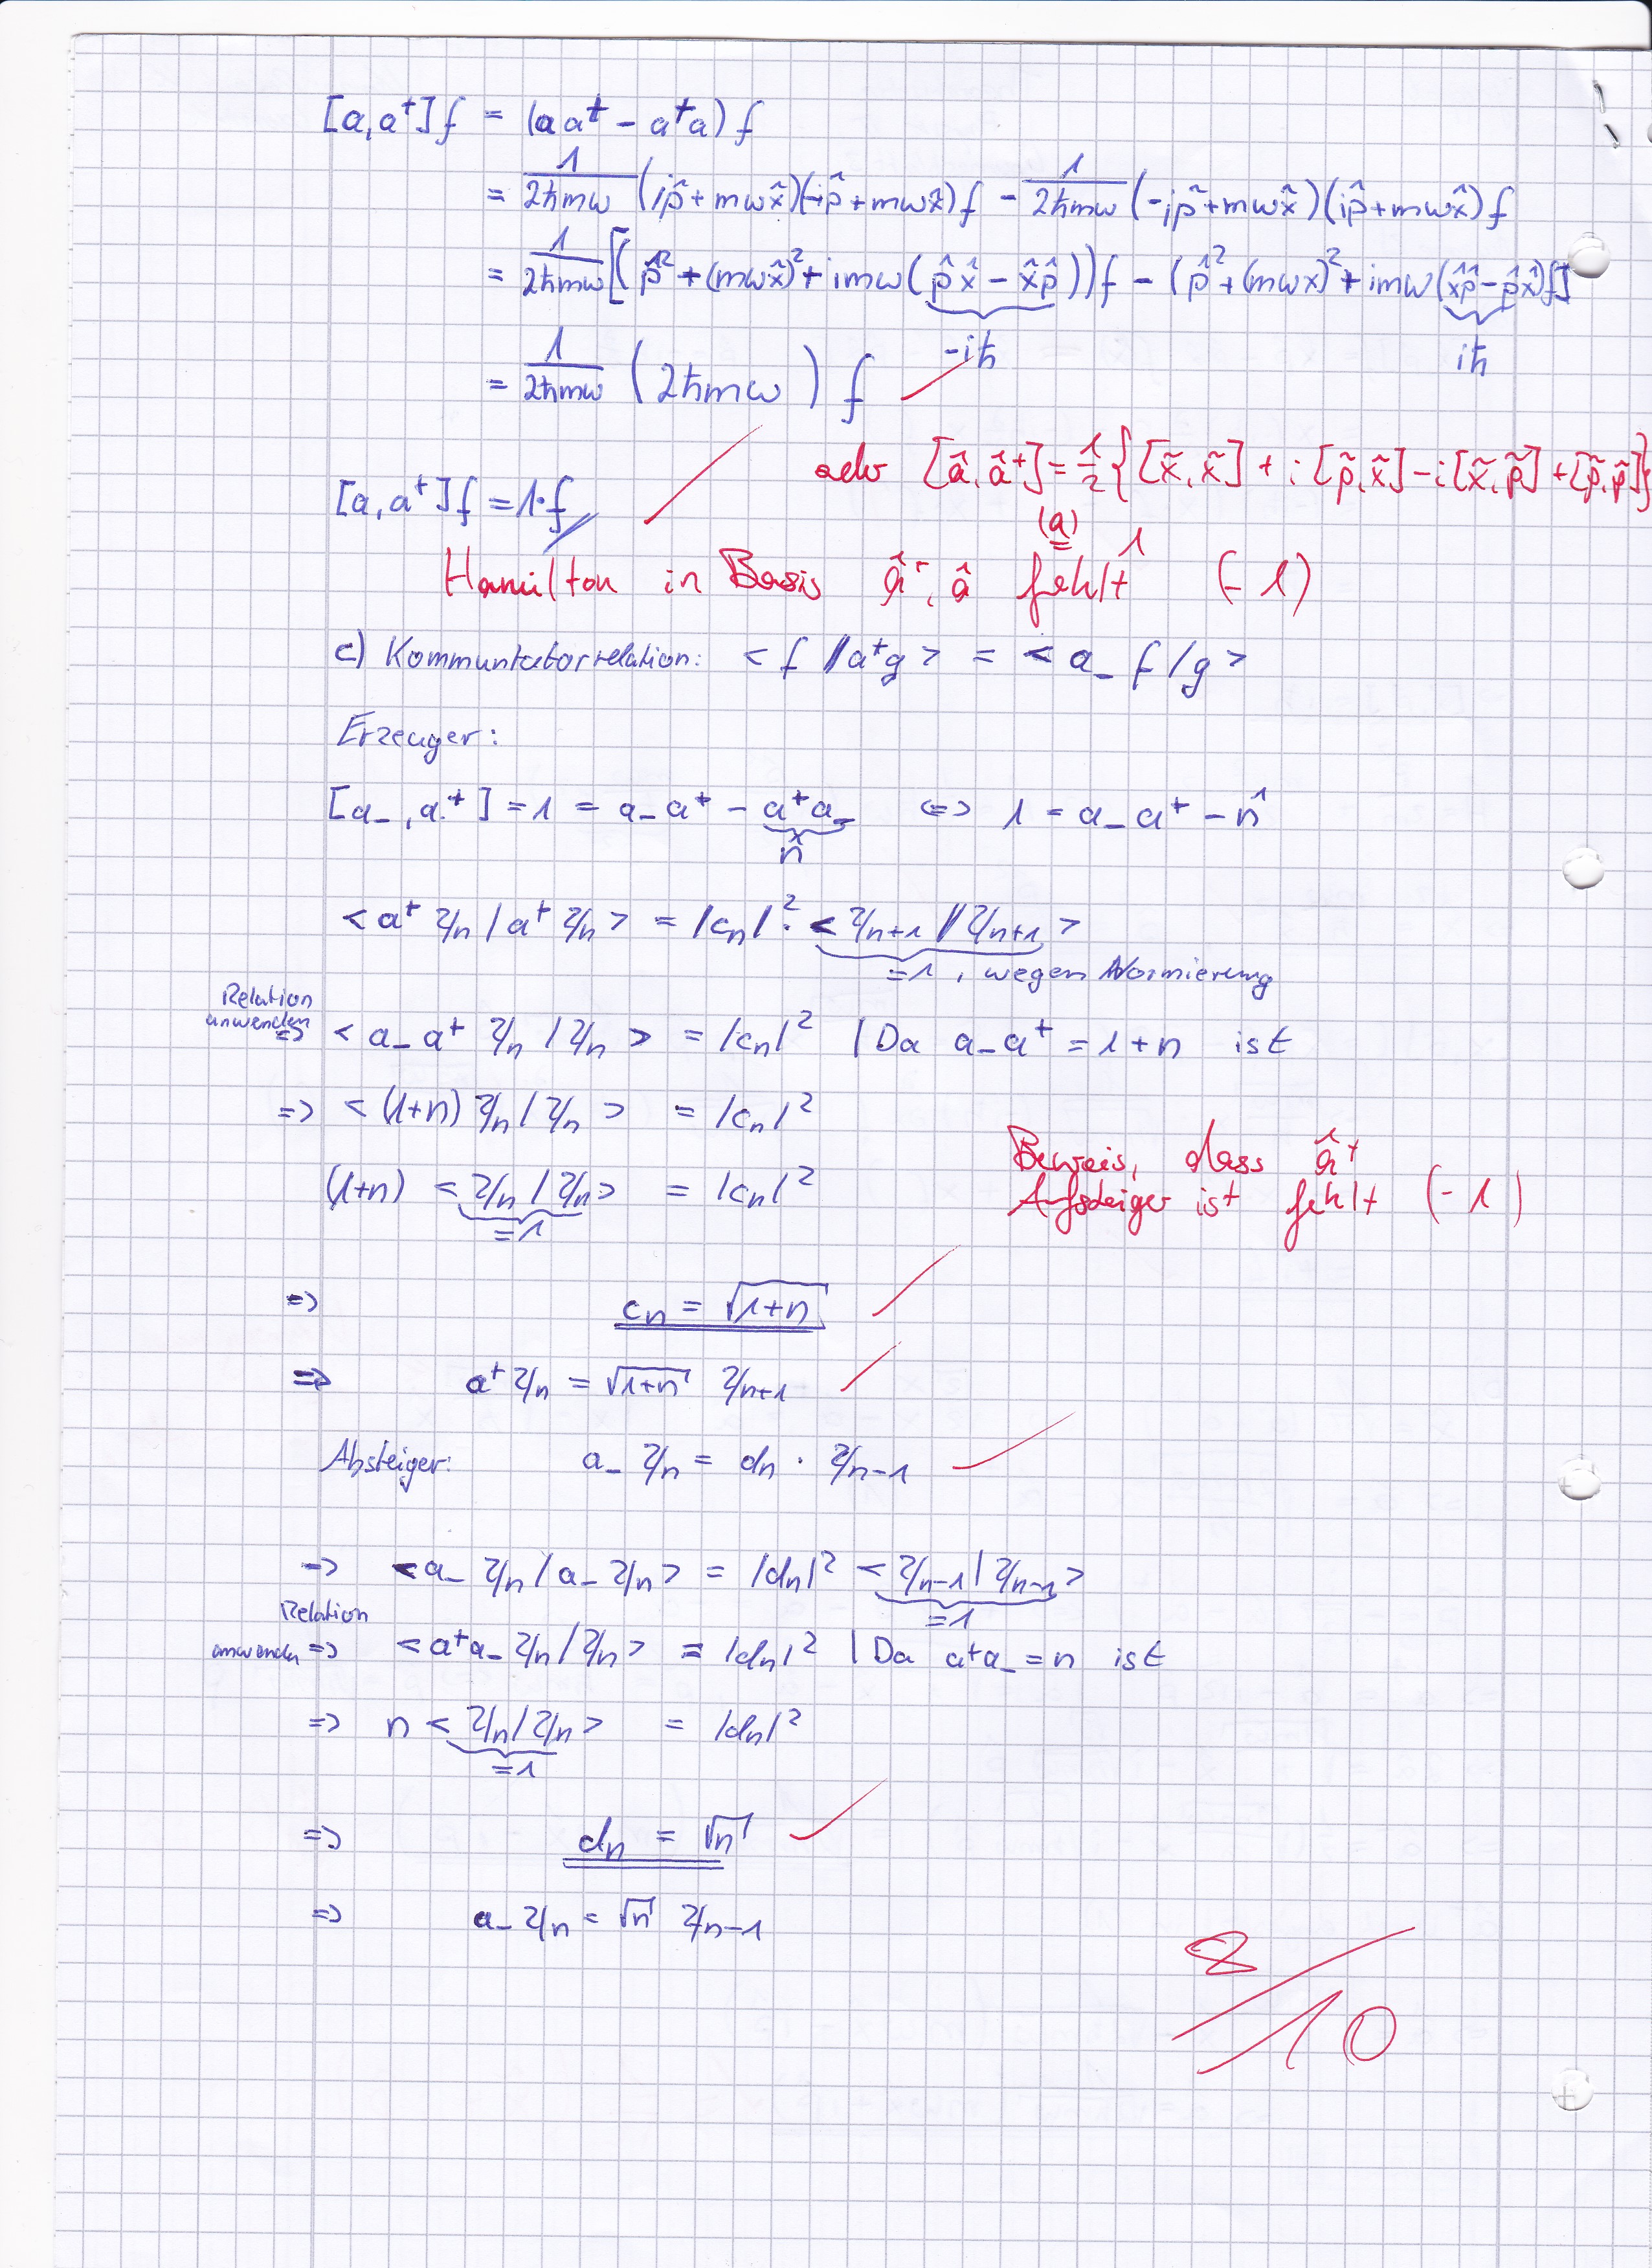 [a,a⁺]f = (aa⁺ - a⁺a) f
= 1/(2ħmω) (ip̂ + mωx̂)(-ip̂ + mωx̂) f - 1/(2ħmω) (-ip̂ + mωx̂)(ip̂ + mωx̂) f
= 1/(2ħmω) [(p̂² + (mωx̂)² + imω(p̂x̂ - x̂p̂)) f - (p̂² + (mωx)² + imω(x̂p̂ - p̂x̂) f]
-iħ iħ
= 1/(2ħmω) (2ħmω) f
oder [â,â⁺] = 1/2 {[x̃,x̃] + i[p̃,x̃] - i[x̃,p̃] + [p̃,p̃]}
[a,a⁺]f = 1·f
(a)
Hamilton in Basis â⁺, â fehlt (-1)
c) Kommuntatorrelation: <f|a⁺g> = <a_ f|g>
Erzeuger:
[a_,a⁺] = 1 = a_a⁺ - a⁺a_ <=> 1 = a_a⁺ - n̂
n̂
<a⁺ψn|a⁺ψn> = |cn|² · <ψn+1|ψn+1>
=1, wegen Normierung
Relation
anwenden => <a_a⁺ ψn|ψn> = |cn|² | Da a_a⁺ = 1+n ist
=> <(1+n) ψn|ψn> = |cn|²
(1+n) <ψn|ψn> = |cn|²
=1
Beweis, dass â⁺
Aufsteiger ist fehlt (-1)
=> cn = √(1+n)
=> a⁺ψn = √(1+n) ψn+1
Absteiger: a_ ψn = dn · ψn-1
=> <a_ ψn|a_ ψn> = |dn|² <ψn-1|ψn-1>
=1
Relation
anwenden => <a⁺a_ ψn|ψn> = |dn|² | Da a⁺a_ = n ist
=> n <ψn|ψn> = |dn|²
=1
=> dn = √n
=> a_ ψn = √n ψn-1
8/10